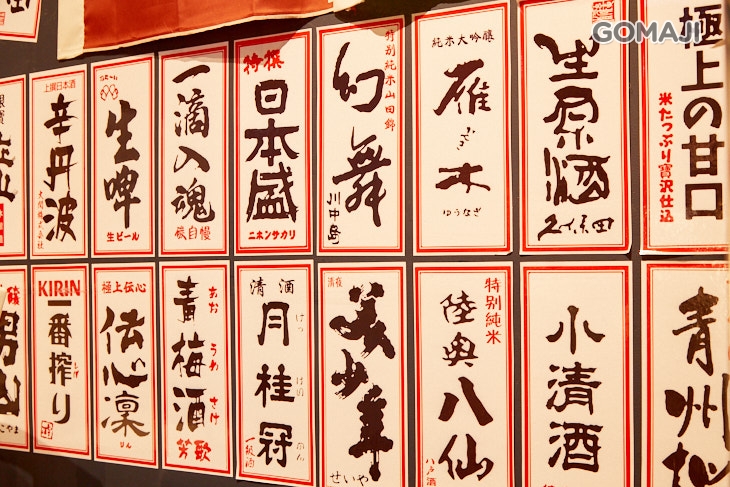 GOMAJI
上撰日本酒
辛丹波
大関株式会社
生啤
生ビール
一滴入魂
磯自慢
特撰
日本盛
ニホンサカリ
特別純米山田錦
幻舞
川中島
純米大吟醸
雁木
ゆうなぎ
生原酒
久保田
極上の甘口
米たっぷり寶沢仕込
KIRIN
一番搾り
極上伝心
伝心凜
りん
青梅酒
あおうめさけ
芳歌
清酒
月桂冠
美少年
せいや
特別純米
陸奥八仙
八戸酒
小清酒
青州